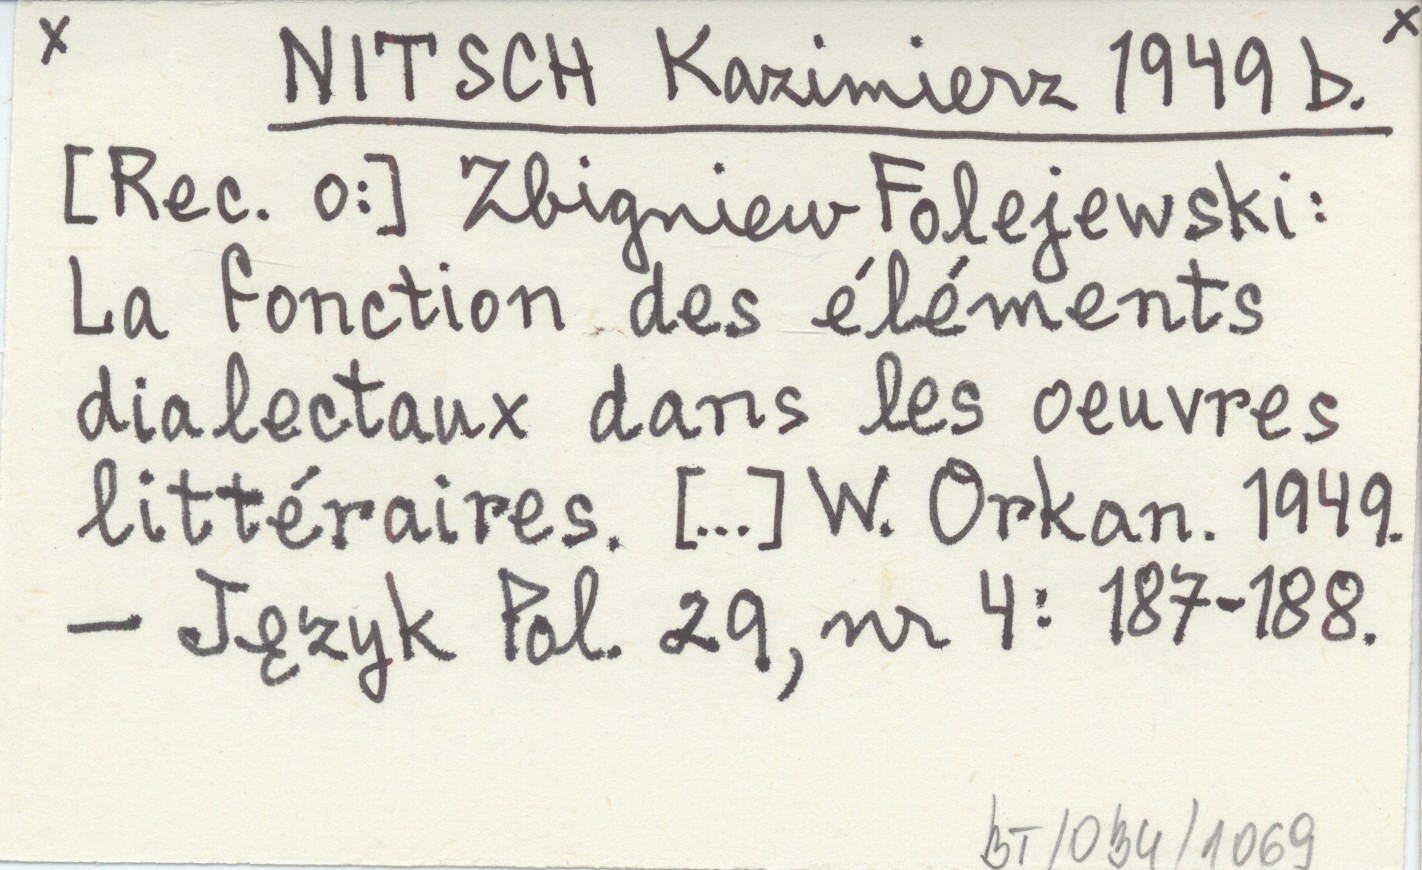 x NITSCH Kazimierz 1949 b. x
[Rec. o:] Zbigniew Folejewski:
La fonction des éléments
dialectaux dans les oeuvres
littéraires. [...] W. Orkan. 1949.
— Język Pol. 29, nr 4: 187-188.
BT/034/1069